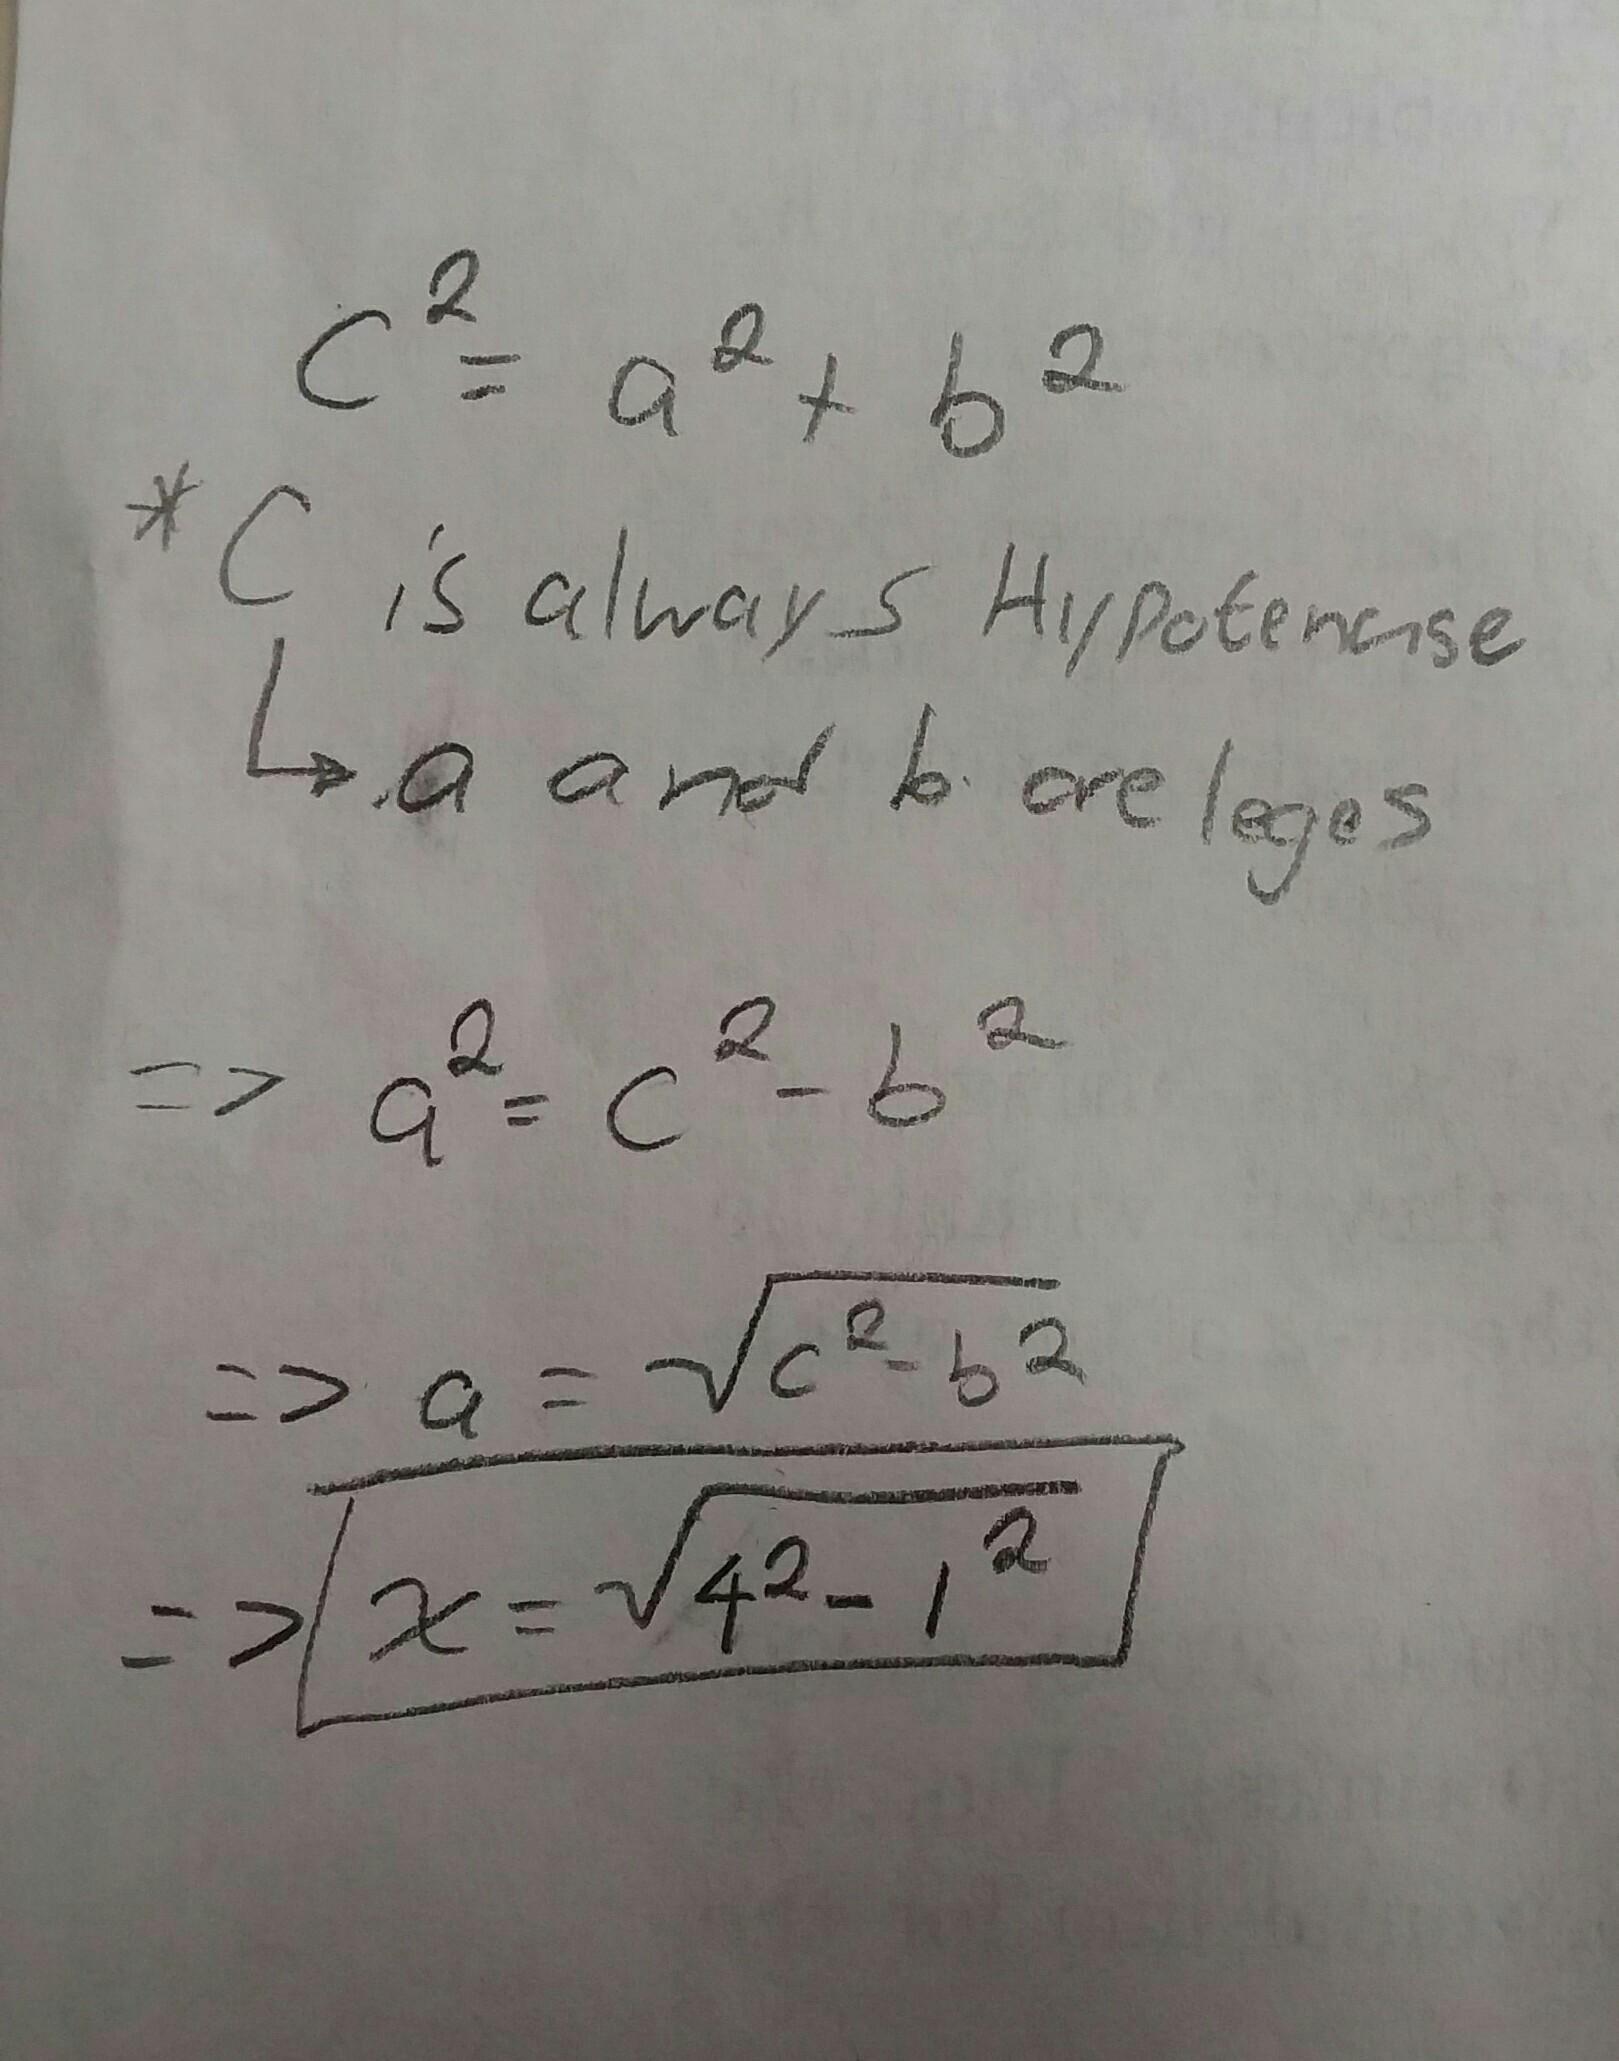 C² = a² + b²
* C is always Hypotenuse
↳ a and b are leges
=> a² = c² - b²
=> a = √c² - b²
=> x = √4² - 1²